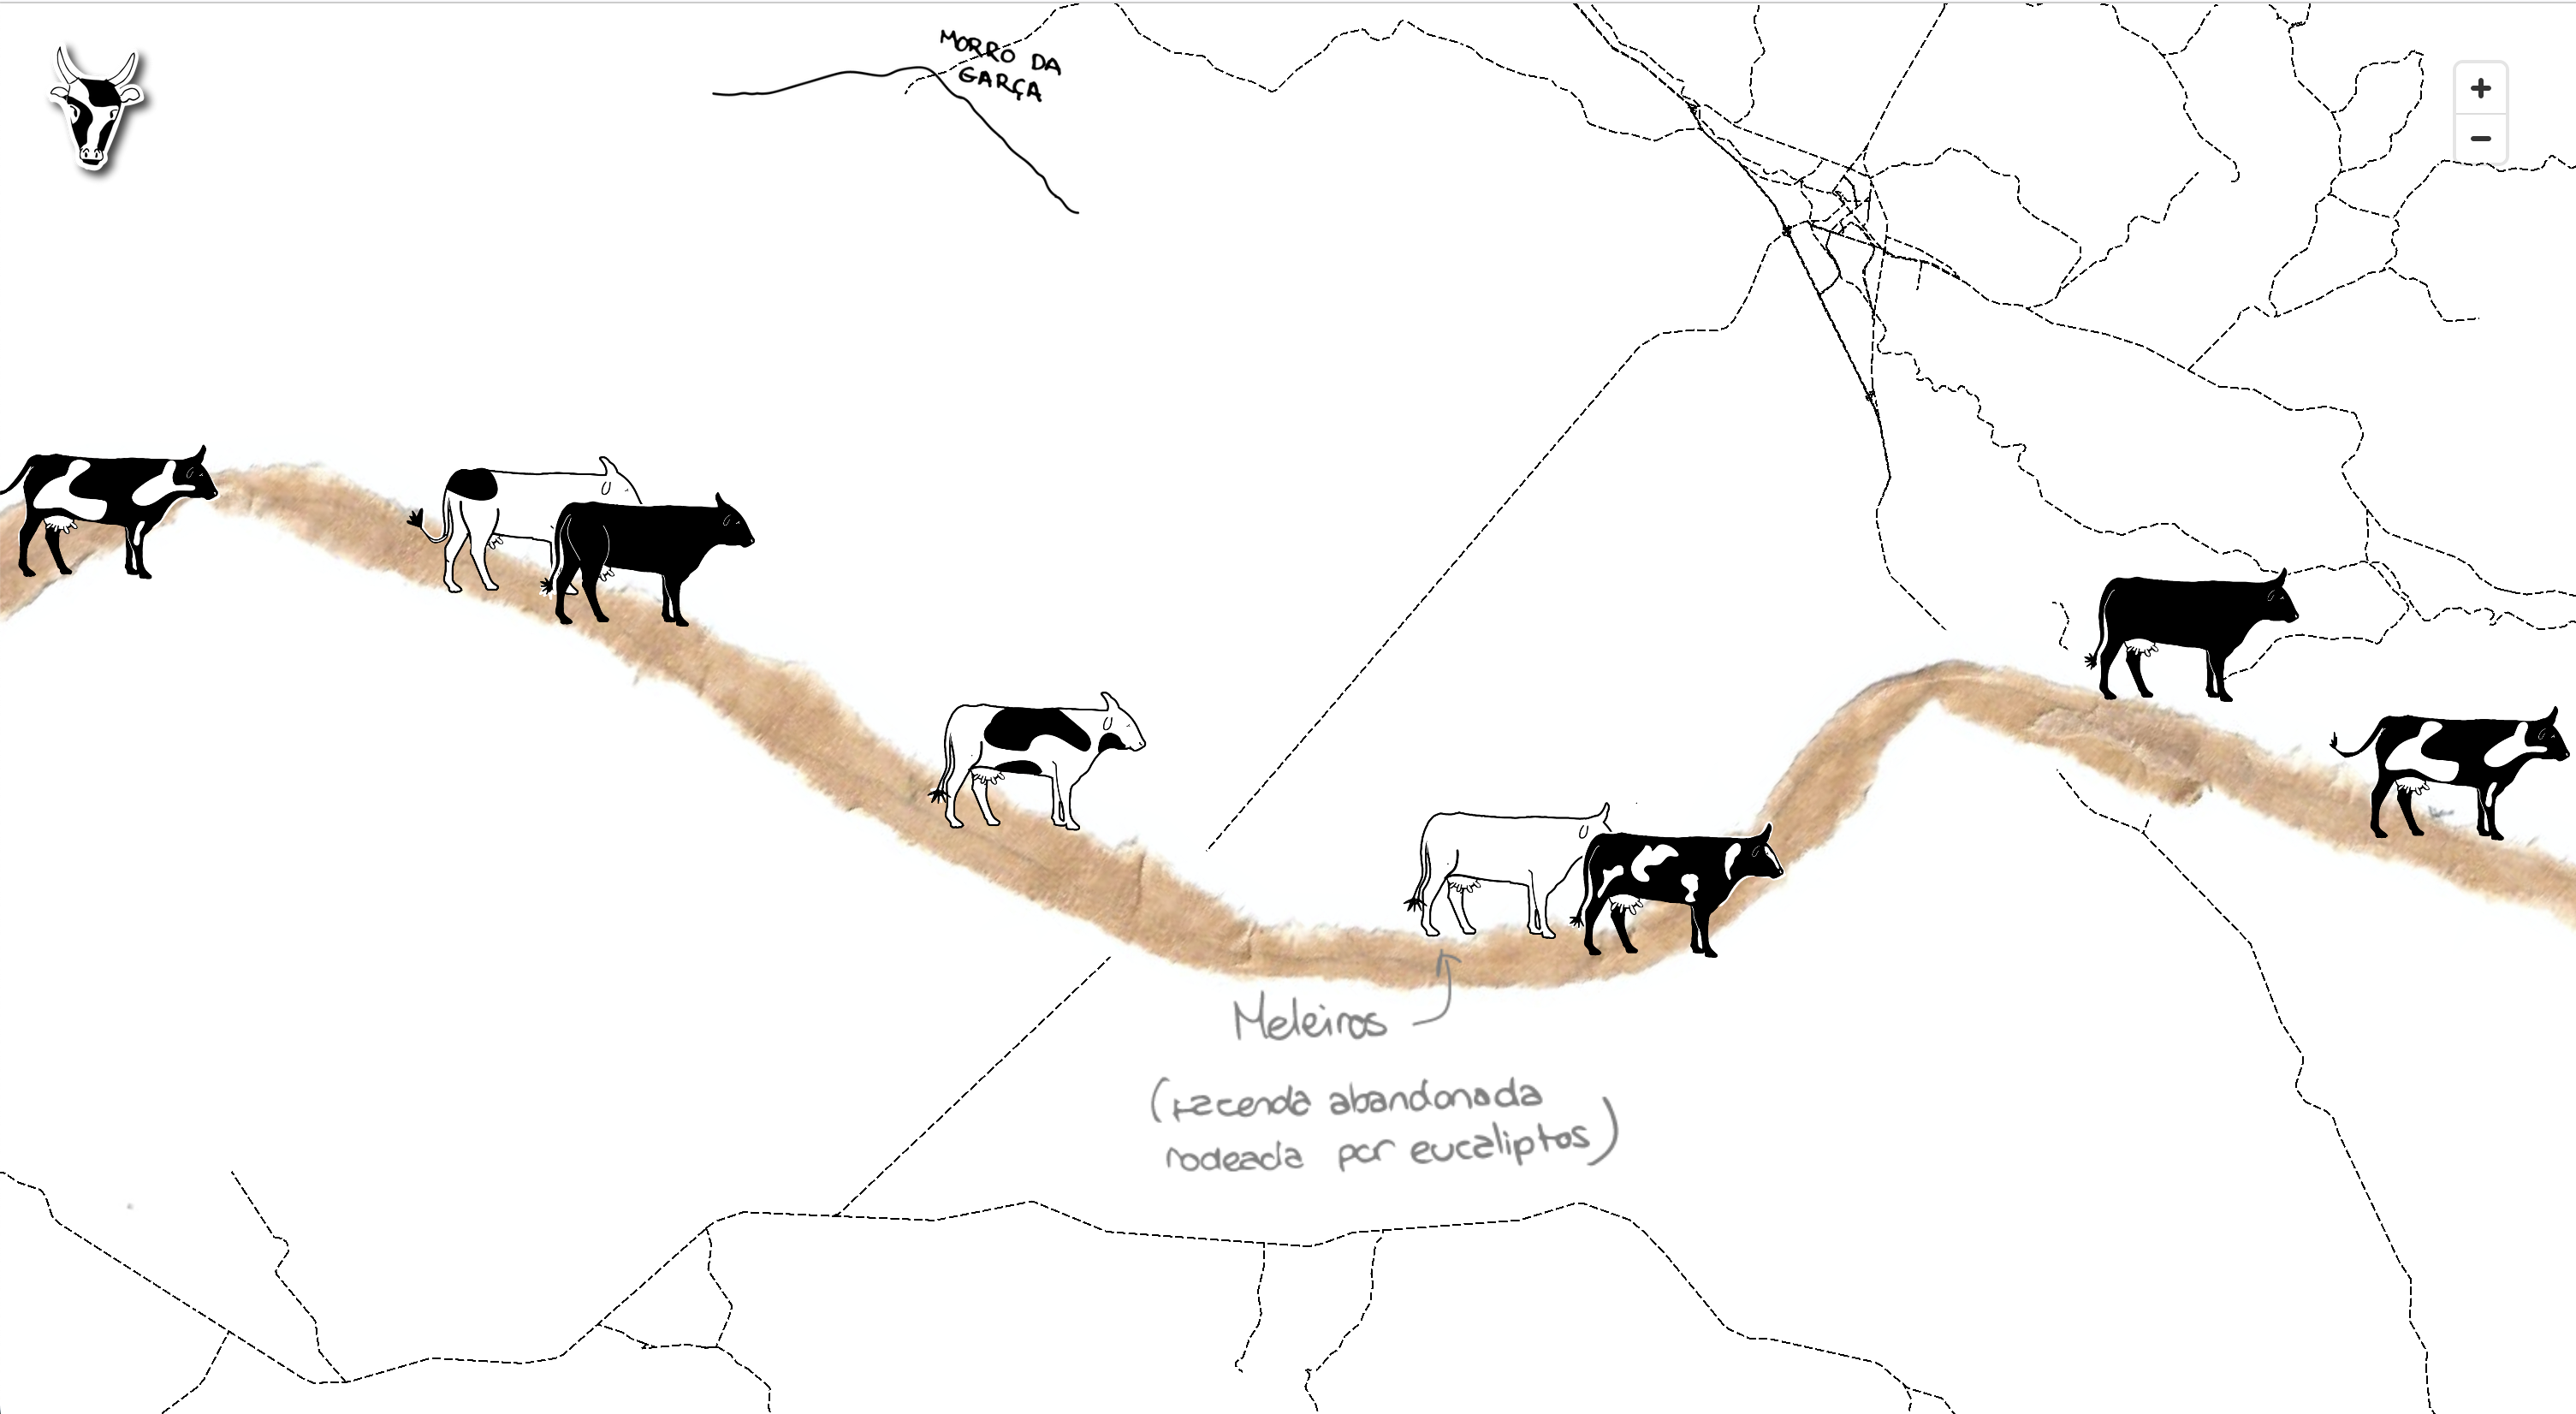 MORRO DA
GARÇA
+
−
Meleiros
(fazenda abandonada
rodeada por eucaliptos)